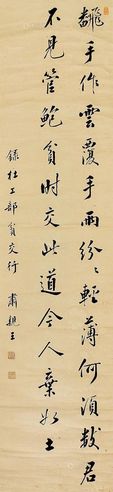 飜手作雲覆手雨紛〻輕薄何須數君
不見管鮑貧时交此道今人棄如土
錄杜工部貧交行 肅親王